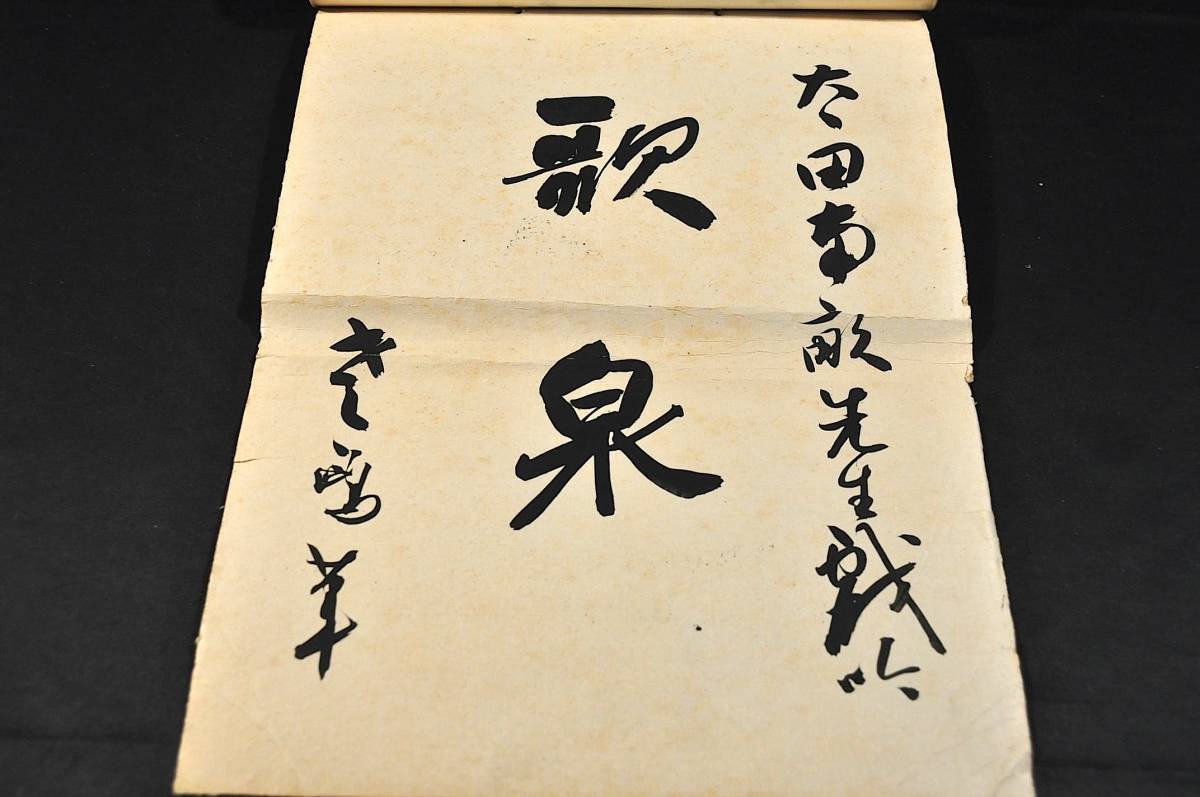 太田南畝先生戯吟
歌泉
筆